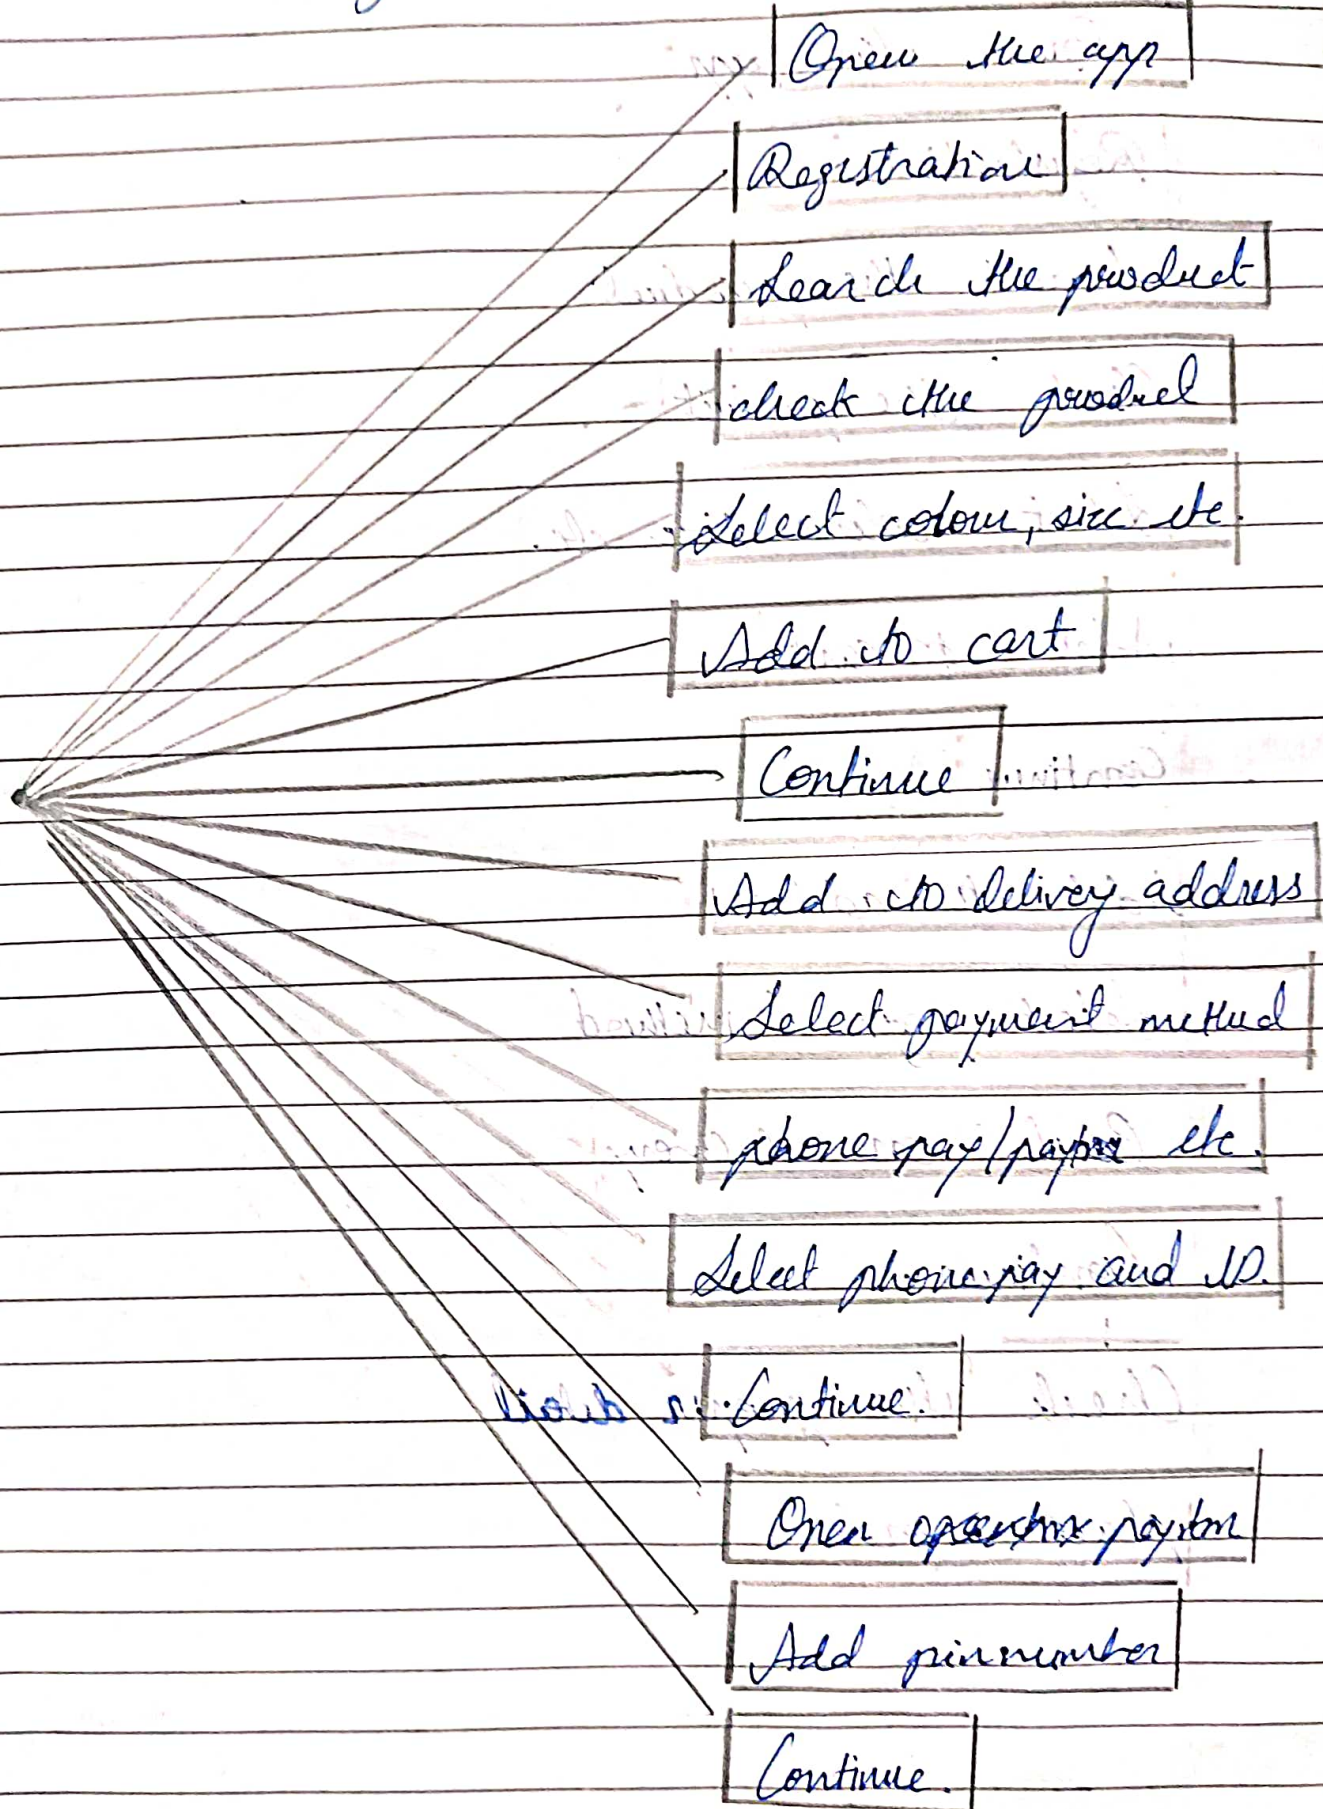 Open the app
Registration
Search the product
check the product
Select colour, size etc.
Add to cart
Continue
Add to delivery address
Select payment method
phone pay/paytm etc.
Select phonepay and ID.
Continue.
Open paytm
Add pinnumber
Continue.